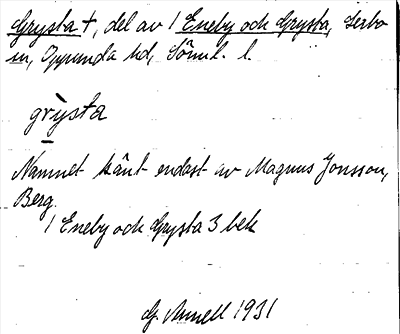 Grysta †, del av 1 Eneby och Grysta, Lerbo
sn, Oppunda hd, Söml. l.
grysta
Namnet känt endast av Magnus Jonsson,
Berg.
1 Eneby och Grysta 3 bek
G. Annell 1931